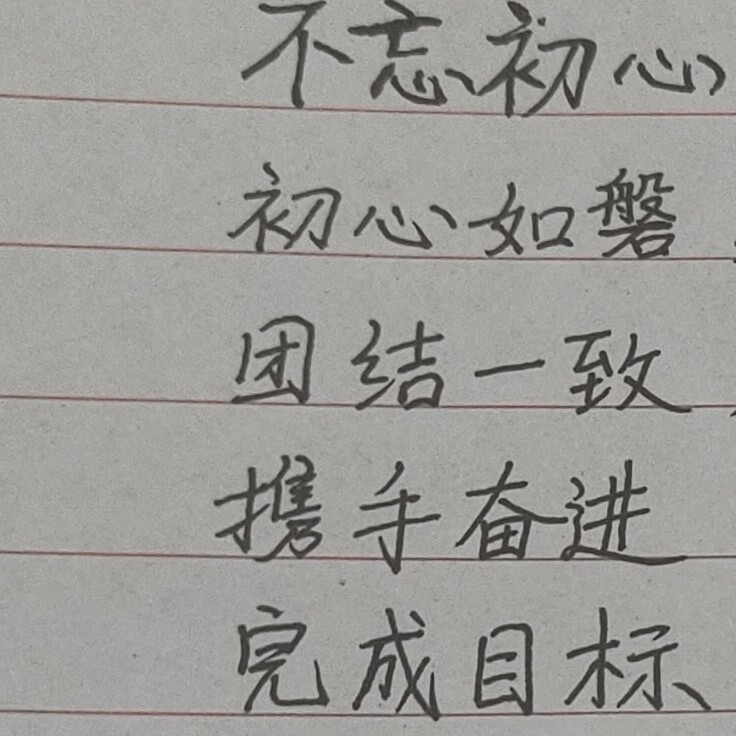 不忘初心
初心如磐,
团结一致,
携手奋进
完成目标